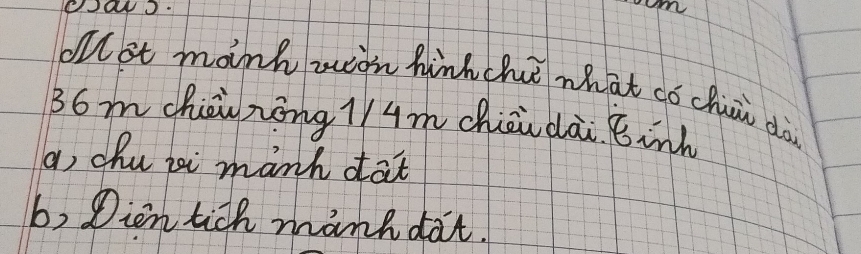 Bài 3.
Một mảnh vườn hình chữ nhật có chiều dài
36m chiều rộng 1/4m chiều dài. Tính
a, chu vi mảnh đất
b, Diện tích mảnh đất.